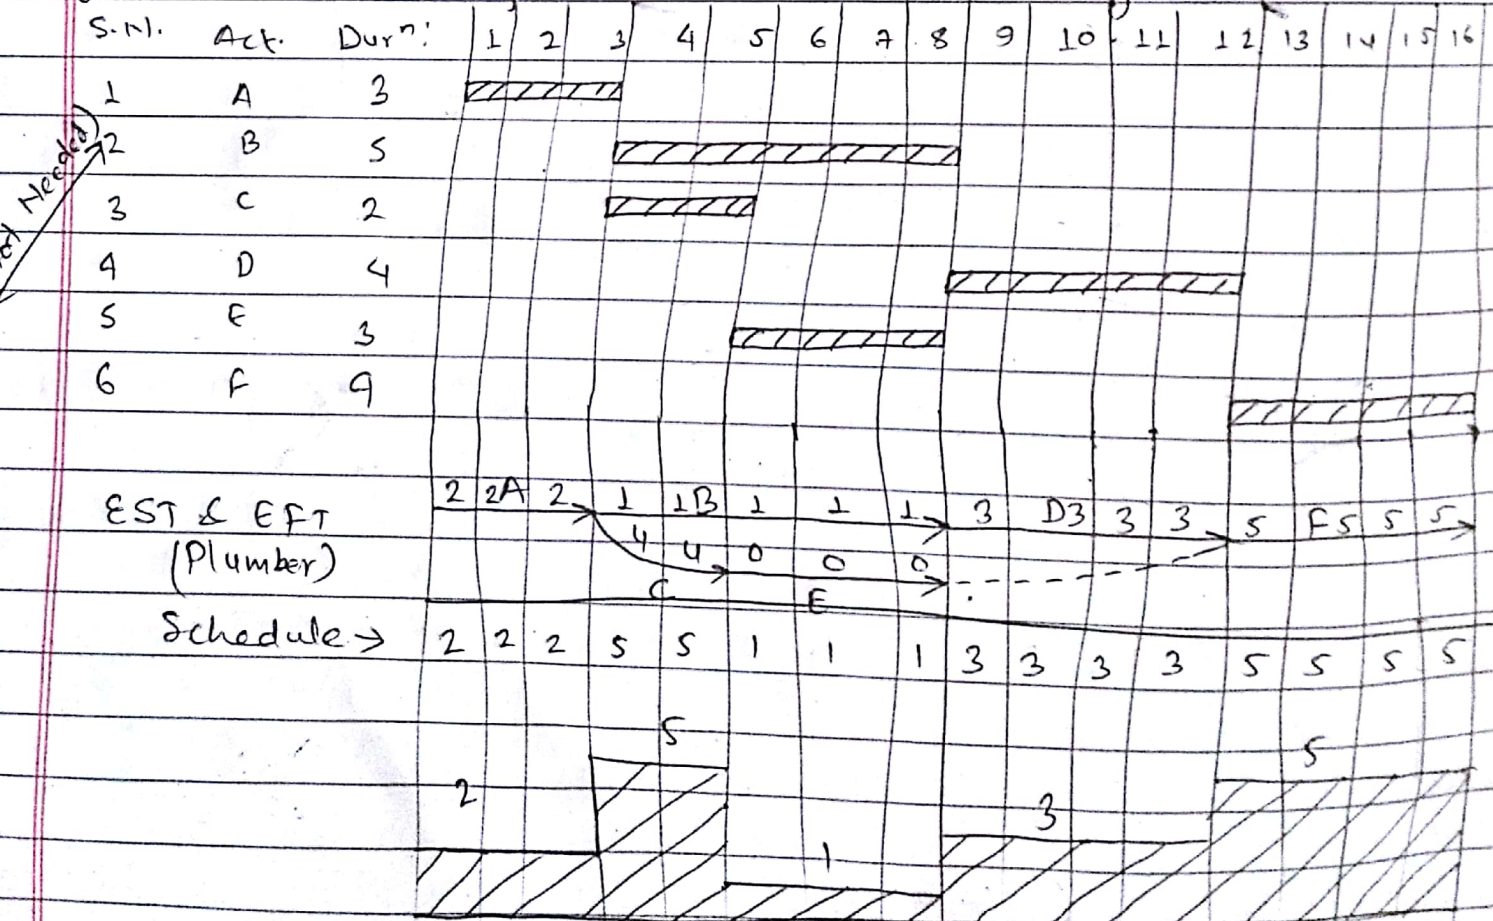 S.N. Act. Durn: 1 2 3 4 5 6 7 8 9 10 11 12 13 14 15 16
1 A 3
2 B 5
3 C 2
4 D 4
5 E 3
6 F 9
Needed)
EST & EFT 2 2A 2 1 1B 1 1 1 3 D3 3 3 5 F5 5 5
(Plumber) 4 4 0 0 0
C E
Schedule → 2 2 2 5 5 1 1 1 3 3 3 3 5 5 5 5
2 5 1 3 5